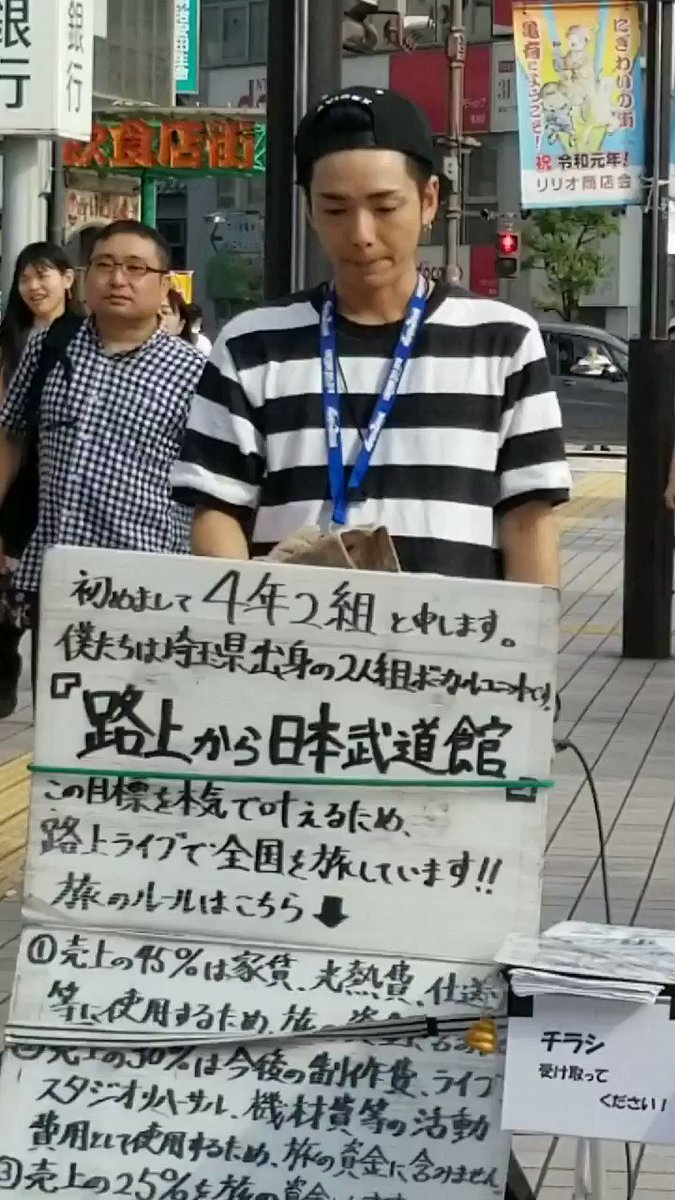 銀行
銀行
飲食店街
にぎわいの街
亀有にようこそ!
祝 令和元年!
リリオ商店会
初めまして 4年2組 と申します。
僕たちは埼玉県出身の2人組ボーカルユニットです!
『路上から日本武道館』
この目標を本気で叶えるため、
路上ライブで全国を旅しています!!
旅のルールはこちら⬇
①売上の45%は家賃、光熱費、仕送り
等に使用するため、旅の資金に含みません
②売上の30%は今後の制作費、ライブ
スタジオリハーサル、機材費等の活動
費用として使用するため、旅の資金に含みません
③売上の25%を旅の資金
チラシ
受け取って
ください!